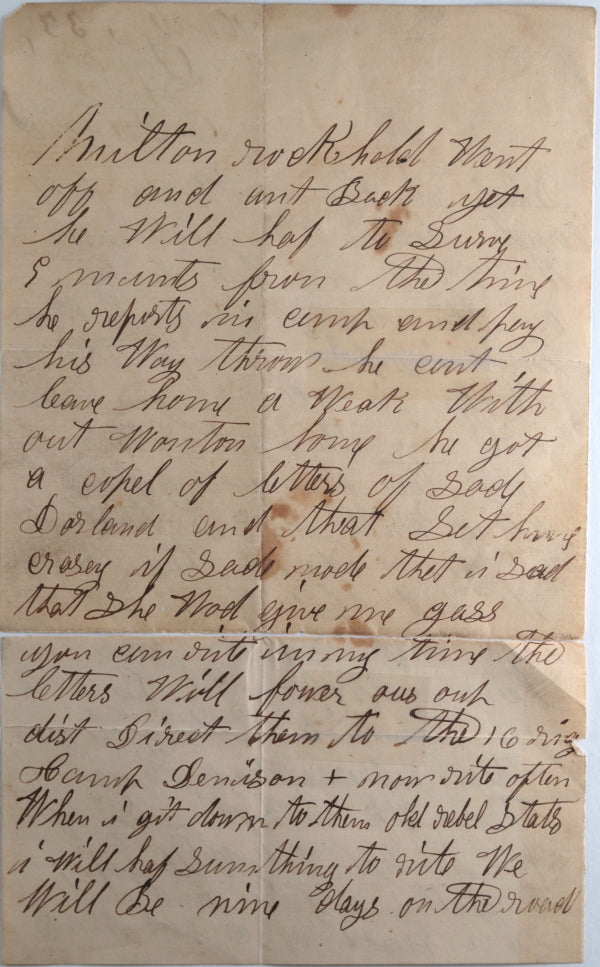 Milton rockhold Went
off and ant Back yet
he Will haf to Surve
mounts from the time
he reports in camp and pay
his Way throw he cant
leave home a Weak With
out Wonton home he got
a copel of letters of Sade
Dorland and that Set him
crasey if Sade node thet i Sad
that She Wod give me gass
you can rite in my time the
letters Will fower ous our
dist Direct them to the 16 rig
Camp Denison + now rite often
When i git down to them old rebel Stats
i Will haf Sumthing to rite We
Will Be nine days on the road